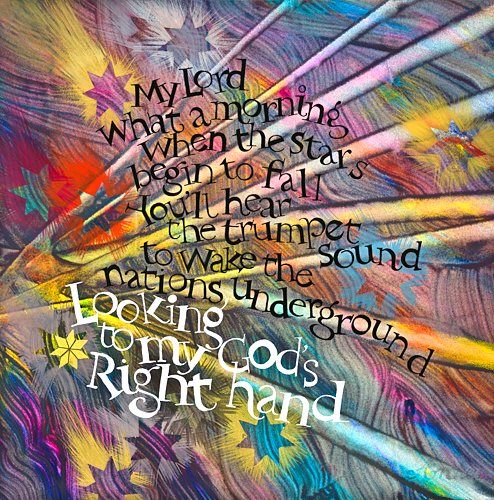 My Lord
What a morning
when the stars
begin to fall
You'll hear
the trumpet
sound
to wake the
nations underground
Looking
to my God's
Right hand